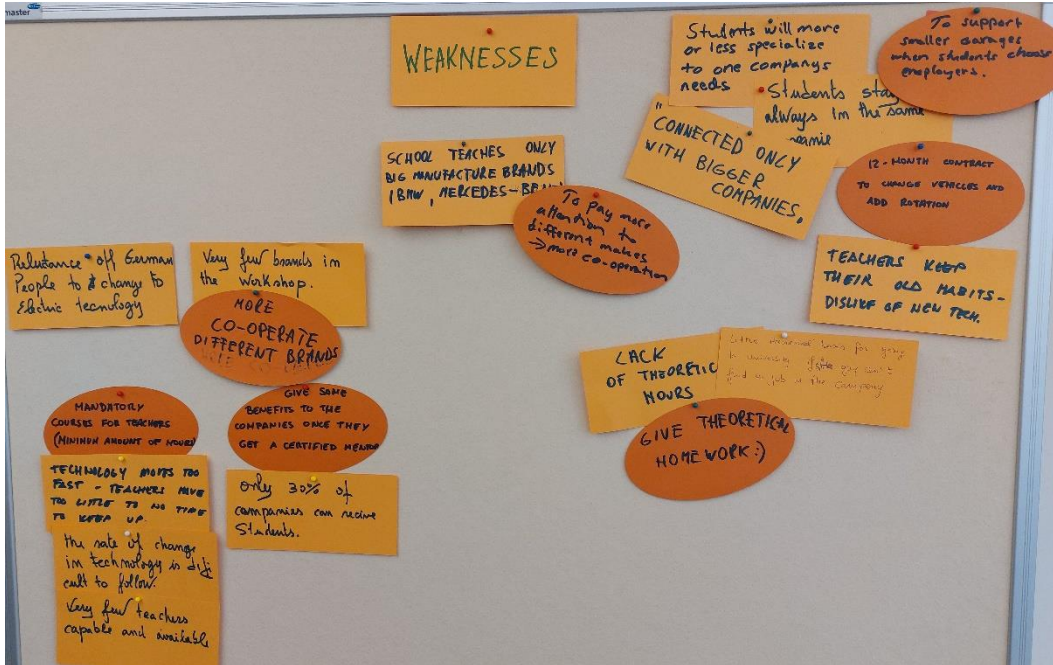 master
WEAKNESSES
Students will more
or less specialize
to one companys
needs
To support
smaller garages
when students choose
employers.
Students stay
always in the same
"CONNECTED ONLY
WITH BIGGER
COMPANIES,
12-MONTH CONTRACT
TO CHANGE VEHICLES AND
ADD ROTATION
SCHOOL TEACHES ONLY
BIG MANUFACTURE BRANDS
(BMW, MERCEDES-BENZ
To pay more
attention to
different makes
→ more co-operation
TEACHERS KEEP
THEIR OLD HABITS-
DISLIKE OF NEW TECH.
Relutance off German
People to change to
Electric tecnology
Very few brands in
the workshop.
MORE
CO-OPERATE
DIFFERENT BRANDS
LACK
OF THEORETIC
HOURS
for going
to university if you can't
find a job in the company
GIVE THEORETICAL
HOMEWORK:)
MANDATORY
COURSES FOR TEACHERS
(MINIMUM AMOUNT OF HOURS)
GIVE SOME
BENEFITS TO THE
COMPANIES ONCE THEY
GET A CERTIFIED MENTOR
TECHNOLOGY MOVES TOO
FAST - TEACHERS HAVE
TOO LITTLE TO NO TIME
TO KEEP UP.
only 30% of
companies can recive
Students.
the rate of change
in technology is difi
cult to follow.
Very few teachers
capable and available